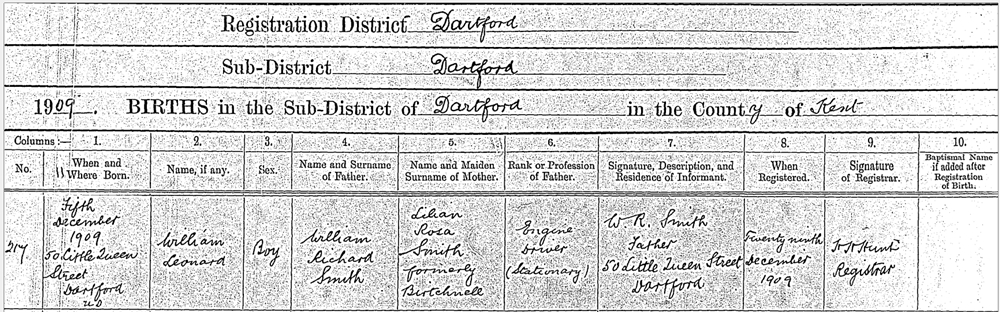 Registration District Dartford
Sub-District Dartford
1909. BIRTHS in the Sub-District of Dartford in the County of Kent
Columns :— 1. 2. 3. 4. 5. 6. 7. 8. 9. 10.
No. When and Where Born. Name, if any. Sex. Name and Surname of Father. Name and Maiden Surname of Mother. Rank or Profession of Father. Signature, Description, and Residence of Informant. When Registered. Signature of Registrar. Baptismal Name if added after Registration of Birth.
217.
Fifth
December
1909
50 Little Queen
Street
Dartford
U D
William
Leonard
Boy
William
Richard
Smith
Lilian
Rosa
Smith
formerly
Birtchnell
Engine
Driver
(Stationary)
W. R. Smith
Father
50 Little Queen Street
Dartford
Twenty ninth
December
1909
Hunt
Registrar